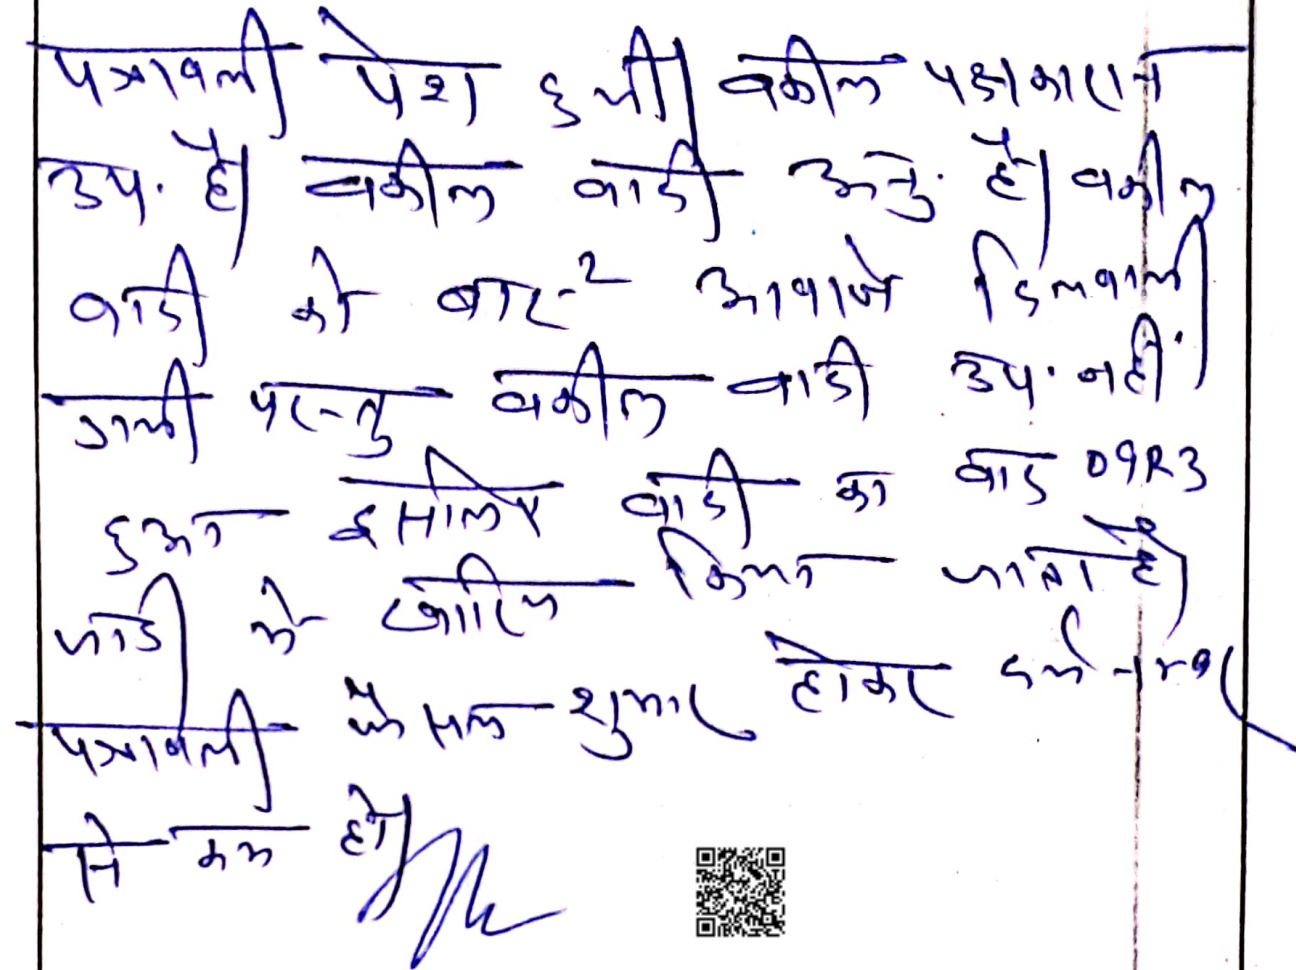 पत्रावली पेश हुयी। वकील पक्षकारान
उप. है। वकील वादी अनु. है। वकील
वादी को बार-2 आवाजे दिलवायी
गयी परन्तु वकील वादी उप. नहीं
हुआ इसलिए वादी का वाद O9R3
में खारिज किया जाता है।
पत्रावली फैसल शुमार होकर नम्बर
से कम हो।